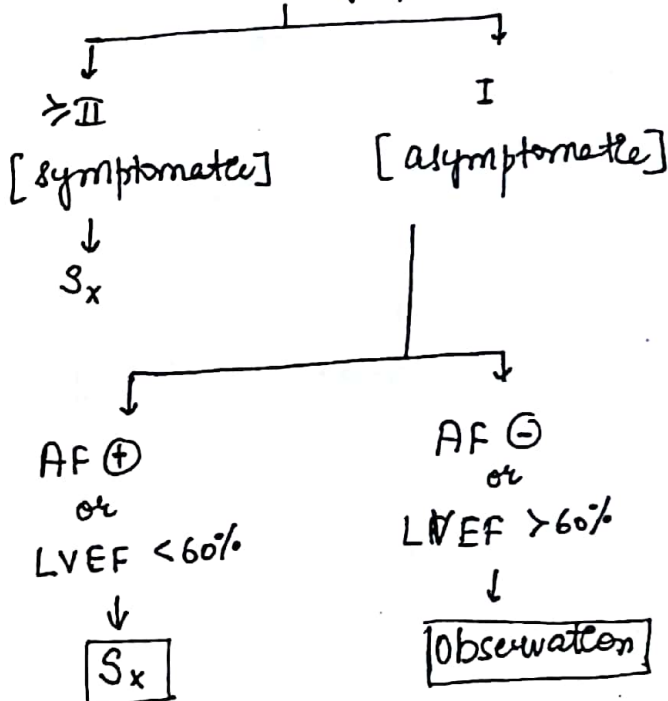 ≥II
I
[symptomatic]
[asymptomatic]
Sx
AF ⊕
or
LVEF <60%
Sx
AF ⊖
or
LVEF >60%
Observation